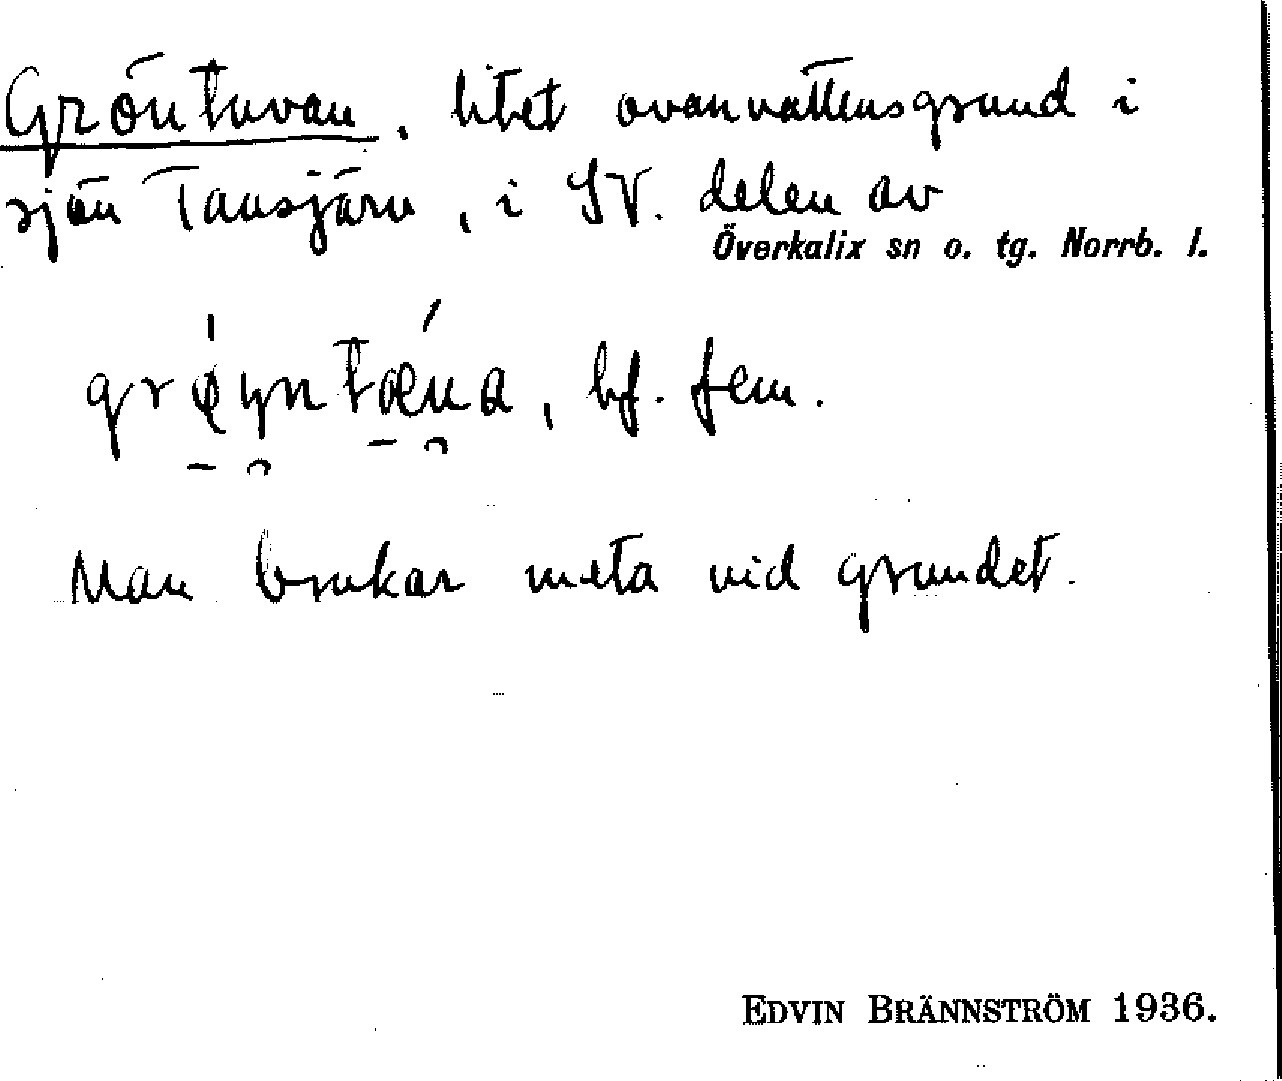 Gröntuvan, litet ovanvattensgrund i
sjön Tansjärn, i SV. delen av
Överkalix sn o. tg. Norrb. l.
bf. fem.
Man brukar meta vid grundet.
EDVIN BRÄNNSTRÖM 1936.